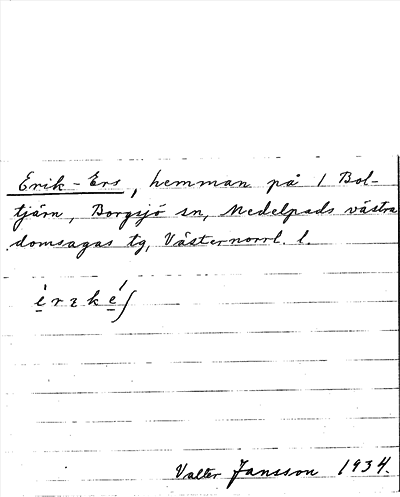 Erik-Ers, hemman på 1 Bol-
tjärn, Borgsjö sn, Medelpads västra
domsagas tg, Västernorrl. l.
Valter Jansson 1934.